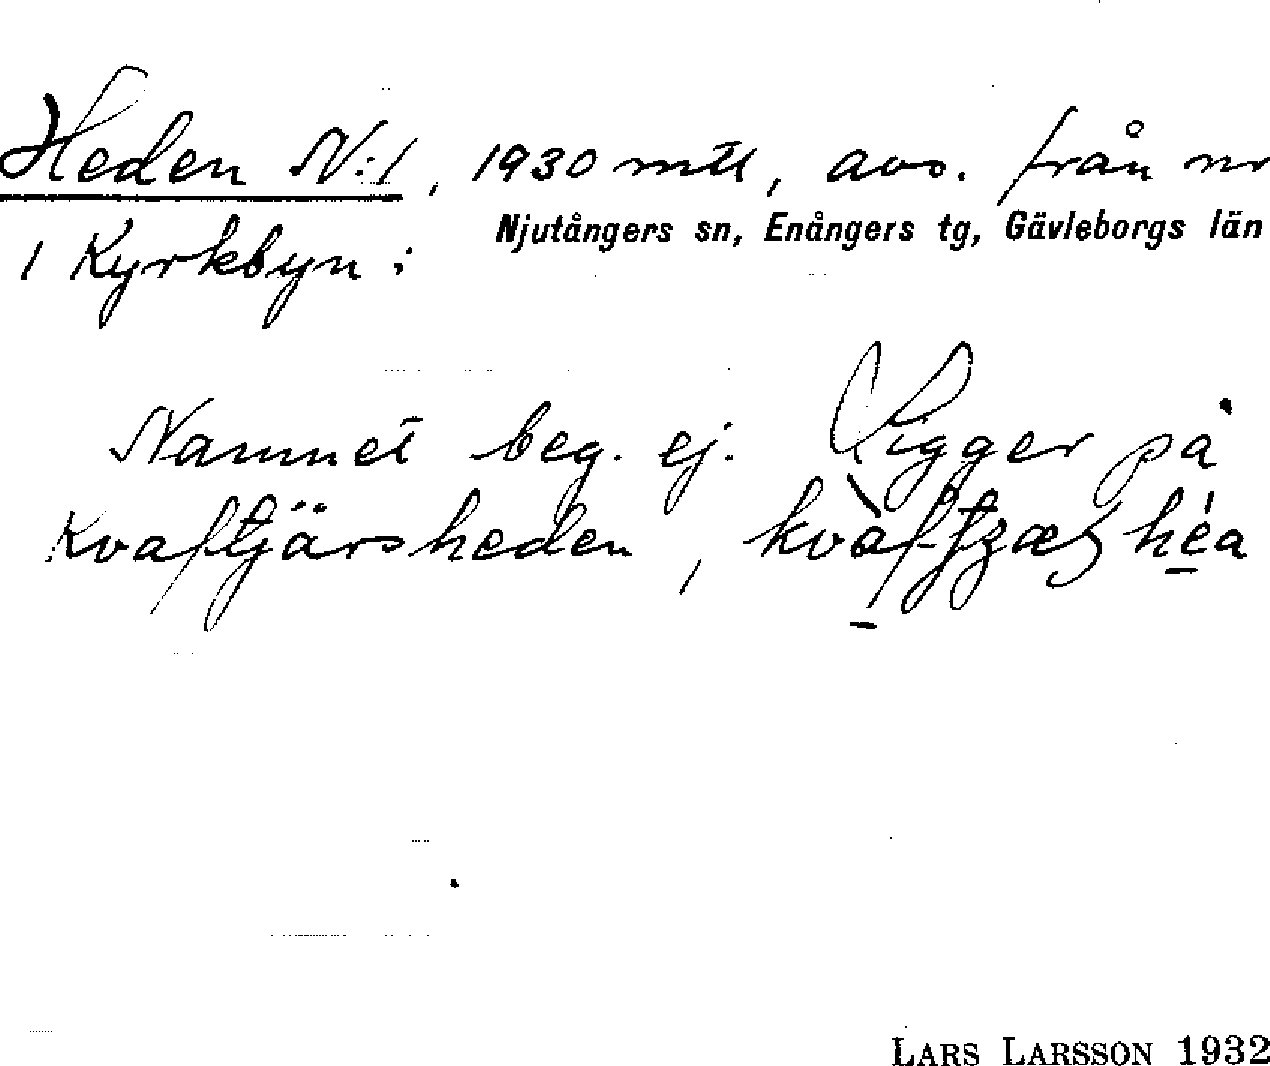 Heden N:1, 1930 mtl, avs. från nr
Njutångers sn, Enångers tg, Gävleborgs län
1 Kyrkbyn:
Namnet beg. ej. Ligger på
Kvaftjärsheden,
LARS LARSSON 1932